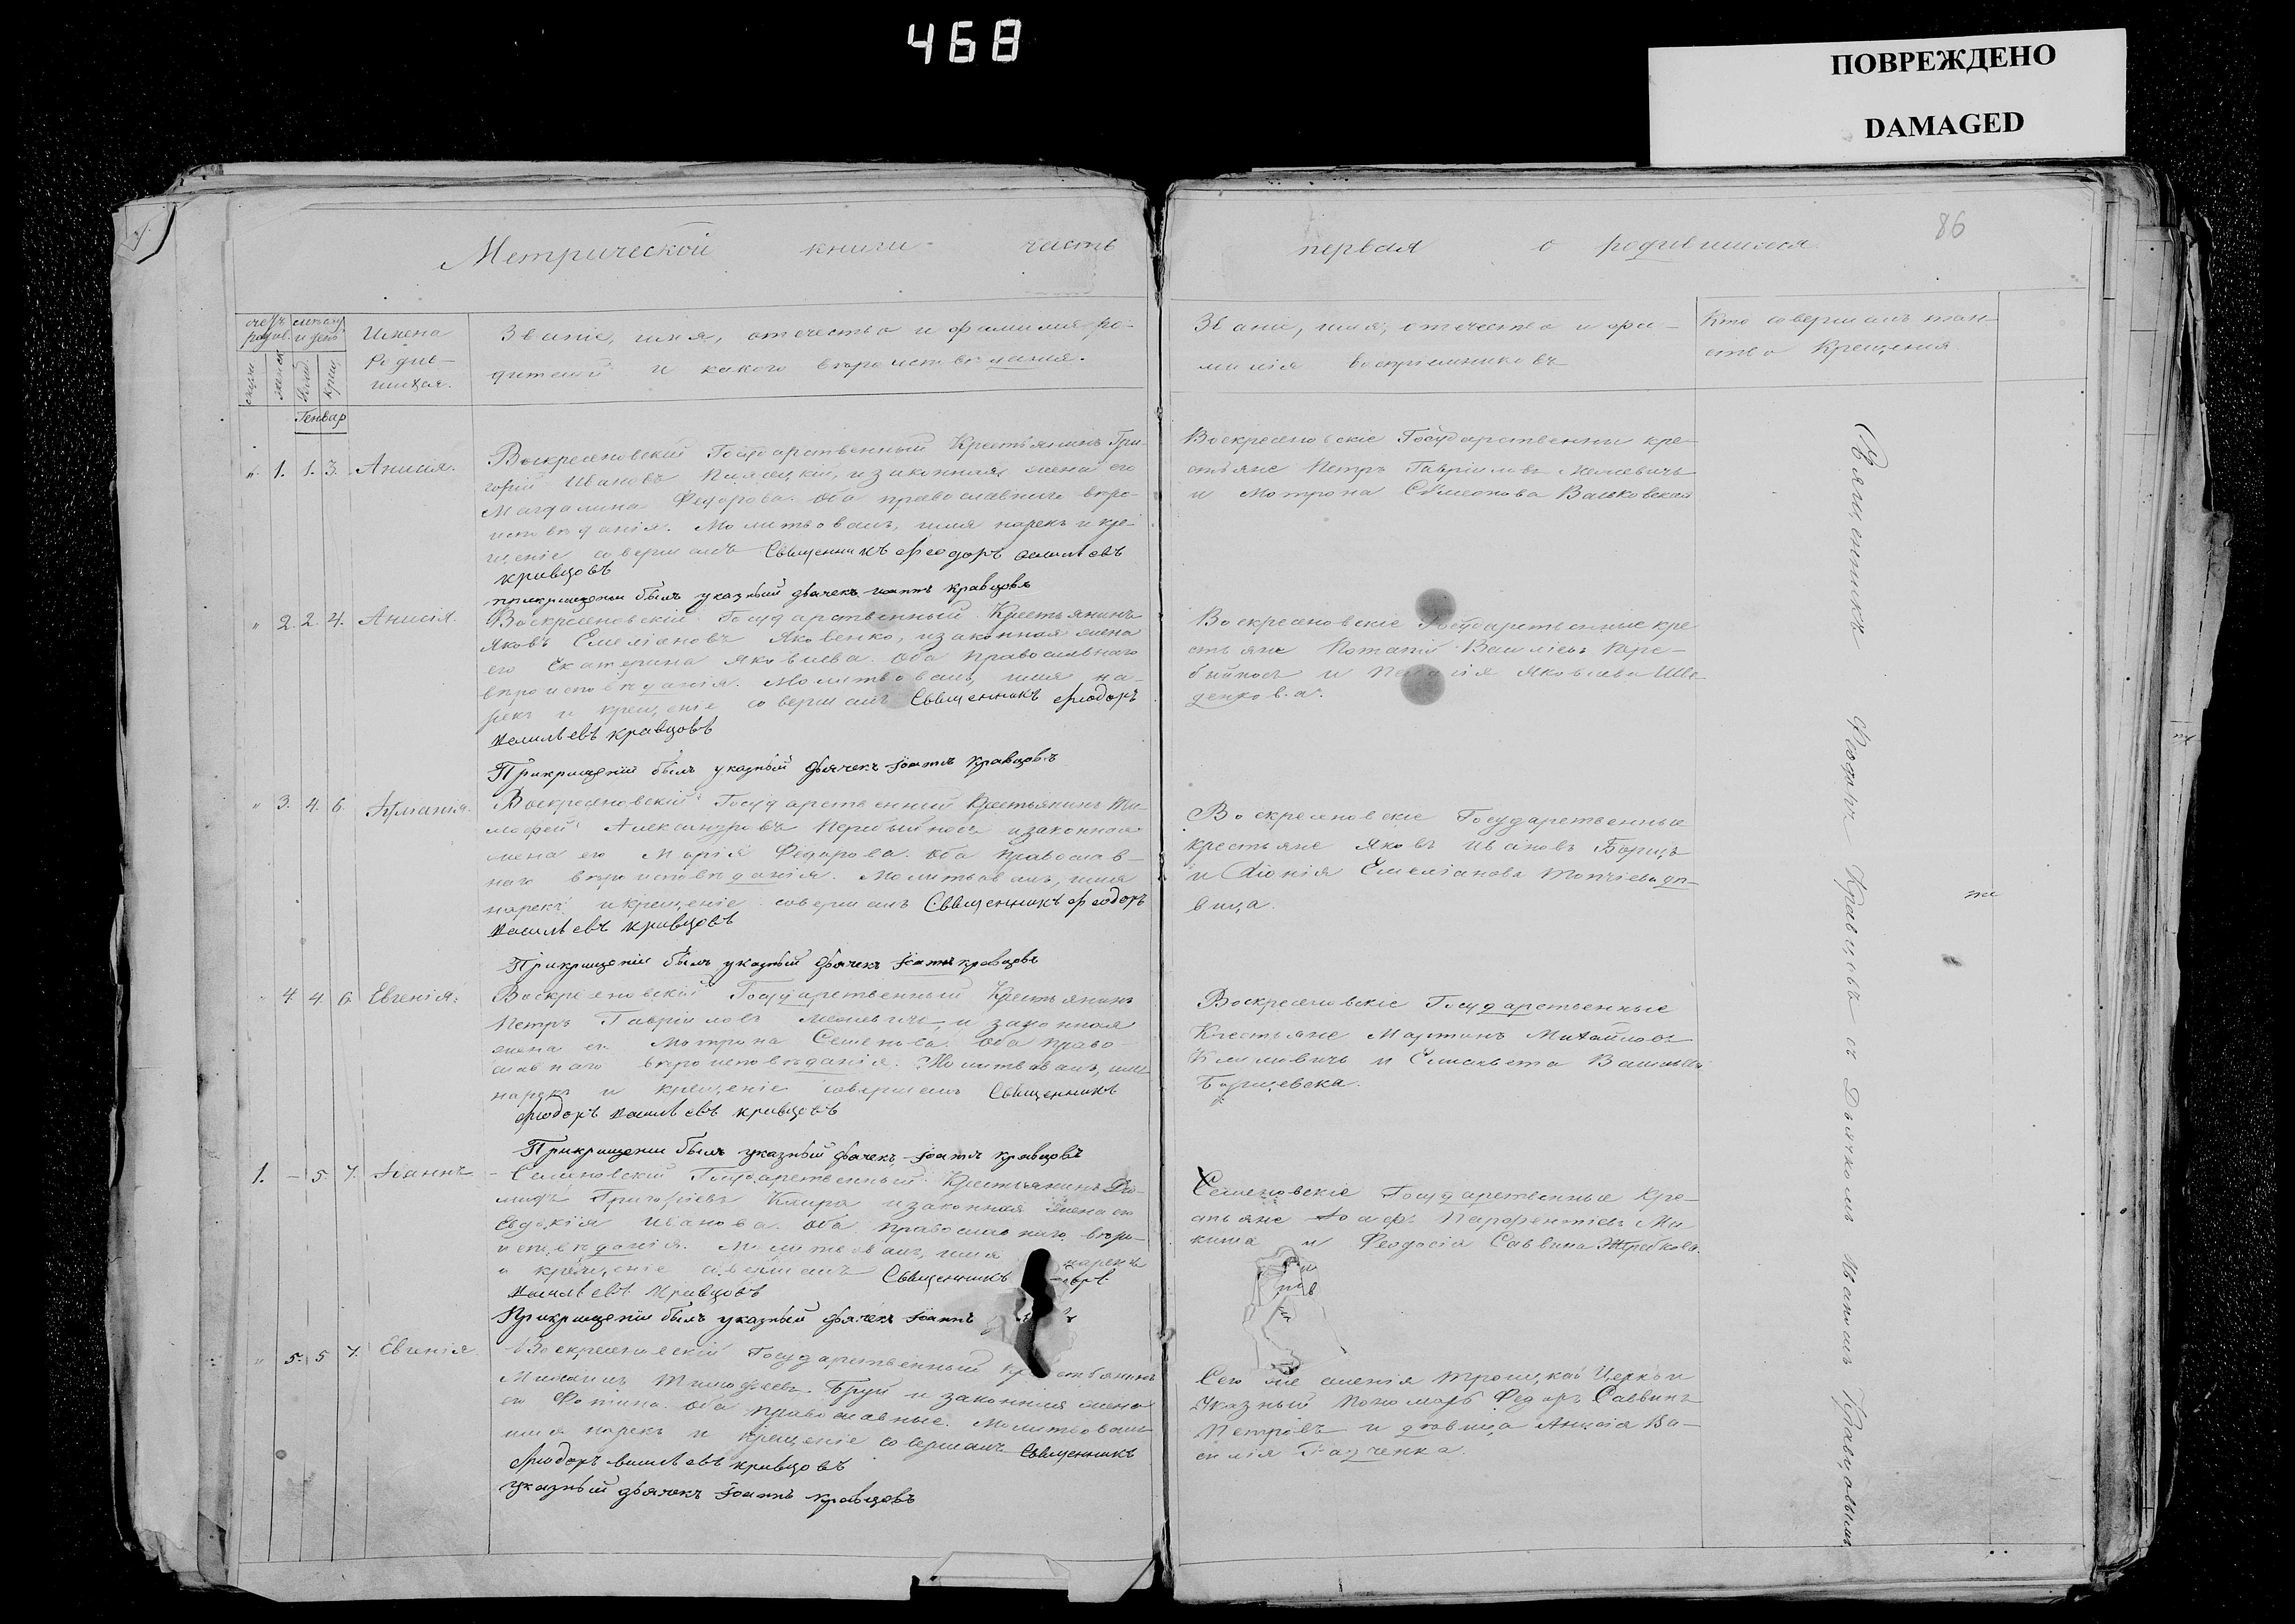 468
ПОВРЕЖДЕНО
DAMAGED
86
Метрической книги часть
первая о родившихся
Имена
Родив-
шихся.
Званіе, имя, отечество и фамилия ро-
дителей и какого вѣроисповѣданія.
Званіе, имя, отечество и фа-
милія воспріемниковъ
Кто совершалъ таи-
ство Крещения
Генвар
" 1. 1. 3. Анисія.
Воскресеновский Государственный Крестьянинъ Гри-
горій Ивановъ и законная жена его
Магдалина Федорова. Оба православного вѣро-
исповѣданія. Молитвовалъ, имя нарекъ и кре-
щеніе совершалъ Священникъ Феодоръ Васильевъ
Кравцовъ
прикрищении былъ указный дьячекъ Іоаннъ Кравцовъ
Воскресеновские Государственни кре-
стьяне Петръ Гавріиловъ
и Мотрона Симеонова Вашковская
" 2. 2. 4. Анисія.
Воскресеновский Государственный Крестьянинъ
Яковъ Емеліановъ Яковенко, и законная жена
его Екатерина Яковлева. Оба православнаго
вѣроисповѣданія. Молитвовалъ, имя на-
рекъ и крещеніе совершалъ Священникъ Феодоръ
Васильевъ Кравцовъ
Прикрищении былъ указный дьячекъ Іоаннъ Кравцовъ
Воскресеновские Государственные кре
стьяне Потапий Василіевъ Пере-
бийносъ и Яковлева Шев-
денкова.
" 3. 4. 6.
Воскресеновский Государственний Крестьянинъ Ти-
мофей Александровъ Перебыйносъ и законная
жена его Марія Федорова. Оба православ-
наго вѣроисповѣданія. Молитвовалъ, имя
нарекъ и крещеніе совершалъ Священникъ Феодоръ
Васильевъ Кравцовъ
Прикрищении былъ указный дьячекъ Іоаннъ Кравцовъ
Воскресеновские Государственные
крестьяне Яковъ Ивановъ Борщъ
и Хіонія Емеліанова дѣ-
вица.
4. 4 6. Евгенія.
Воскресеновский Государственный Крестьянинъ
Петръ Гавріиловъ и законная
жена его Мотрона Семенова. Оба право-
славнаго вѣроисповѣданія. Молитвовалъ, имя
нарекъ и крещеніе совершалъ Священникъ
Феодоръ Васильевъ Кравцовъ
Прикрищении былъ указный дьячекъ Іоаннъ Кравцовъ
Воскресеновские Государственные
Крестьяне Мартинъ Михайловъ
Климовичъ и Елисавета Васильева
Борщевска.
1. – 5. 7. Іоаннъ
Семеновский Государственный Крестьянинъ
Григоріевъ и законная жена его
Евдокія Иванова. Оба православного вѣро-
исповѣданія. Молитвовалъ, имя нарекъ
и крещеніе совершалъ Священникъ
Васильевъ Кравцовъ
Прикрищении былъ указный дьячекъ Іоаннъ
Семеновские Государственные Кре-
стьяне Парфентіевъ Ми
кита и Феодосія Саввина
" 5. 5 7. Евгенія
Воскресеновский Государственный Крестьянинъ
Михаилъ Тимофеевъ Бруй и законная жена
его Фотина. Оба православные. Молитвовалъ
имя нарекъ и крещеніе совершалъ Священникъ
Феодоръ Васильевъ Кравцовъ
указный дьячекъ Іоаннъ Кравцовъ
Сего же селенія Троицкой Церкви
Указный Пономарь Федоръ Саввинъ
Петровъ и дѣвица Анисія Ва-
силія
Священникъ Феодоръ Кравцовъ съ Дьячкомъ Иваномъ Кравцовымъ